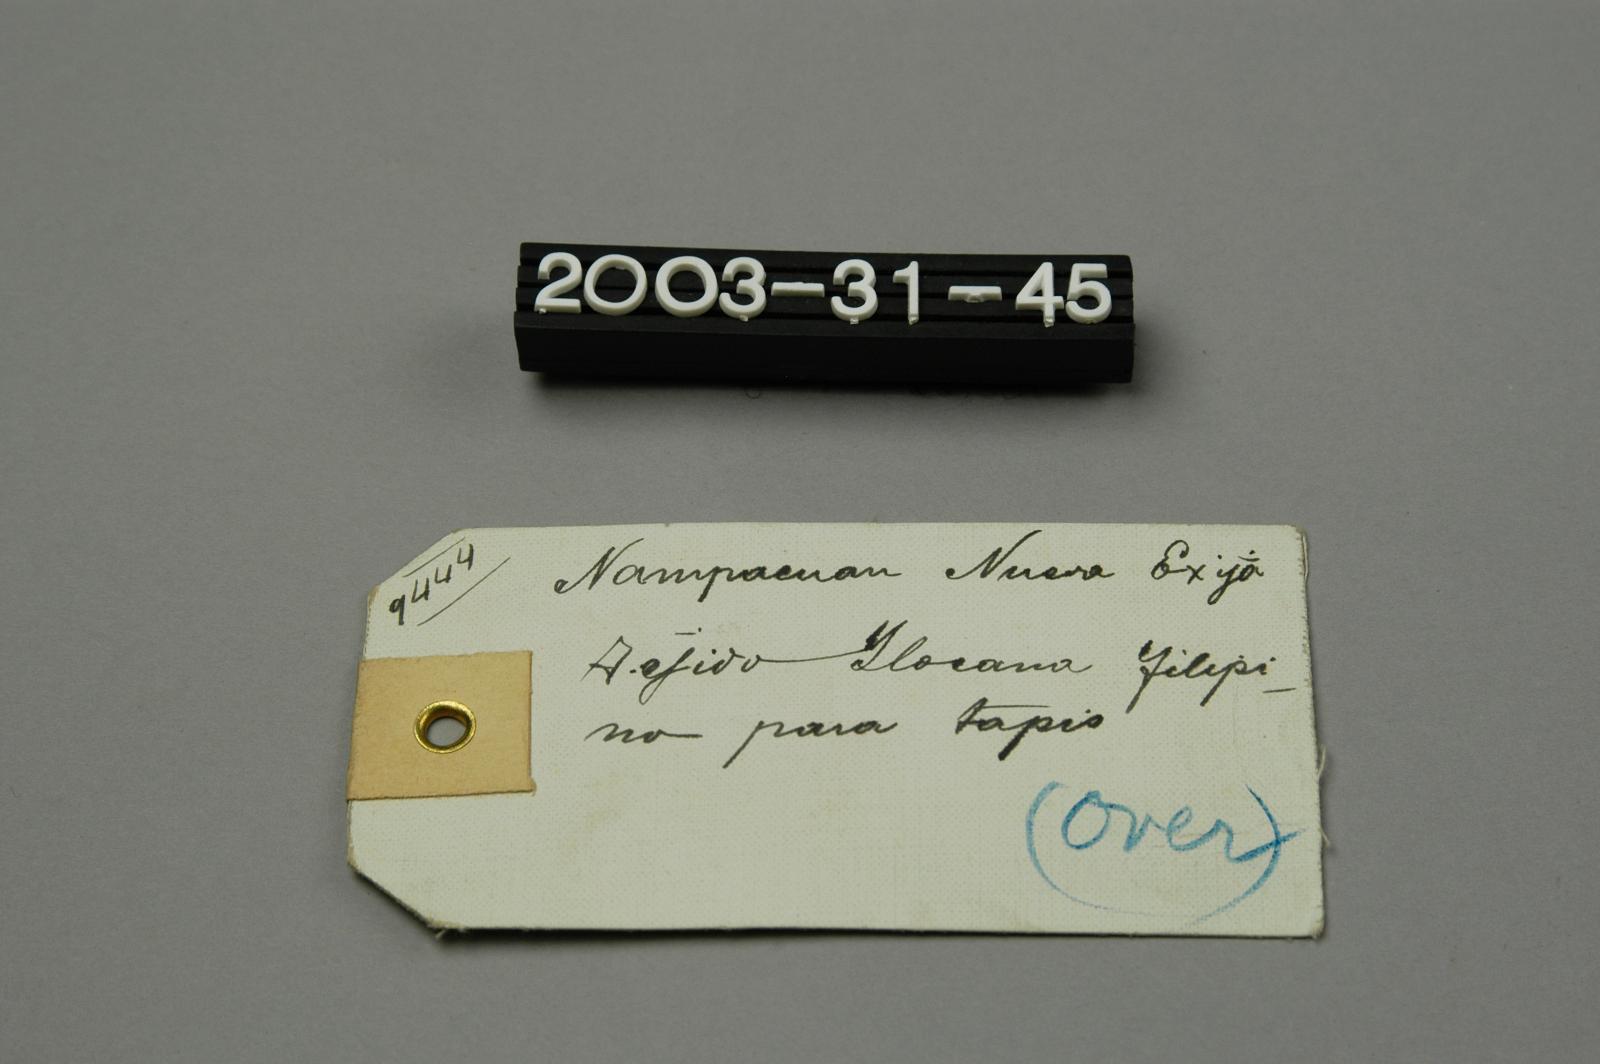 2003-31-45
9444
Nampacuan Nueva Exija
Tejido Ilocana filipi-
no para tapis
(over)